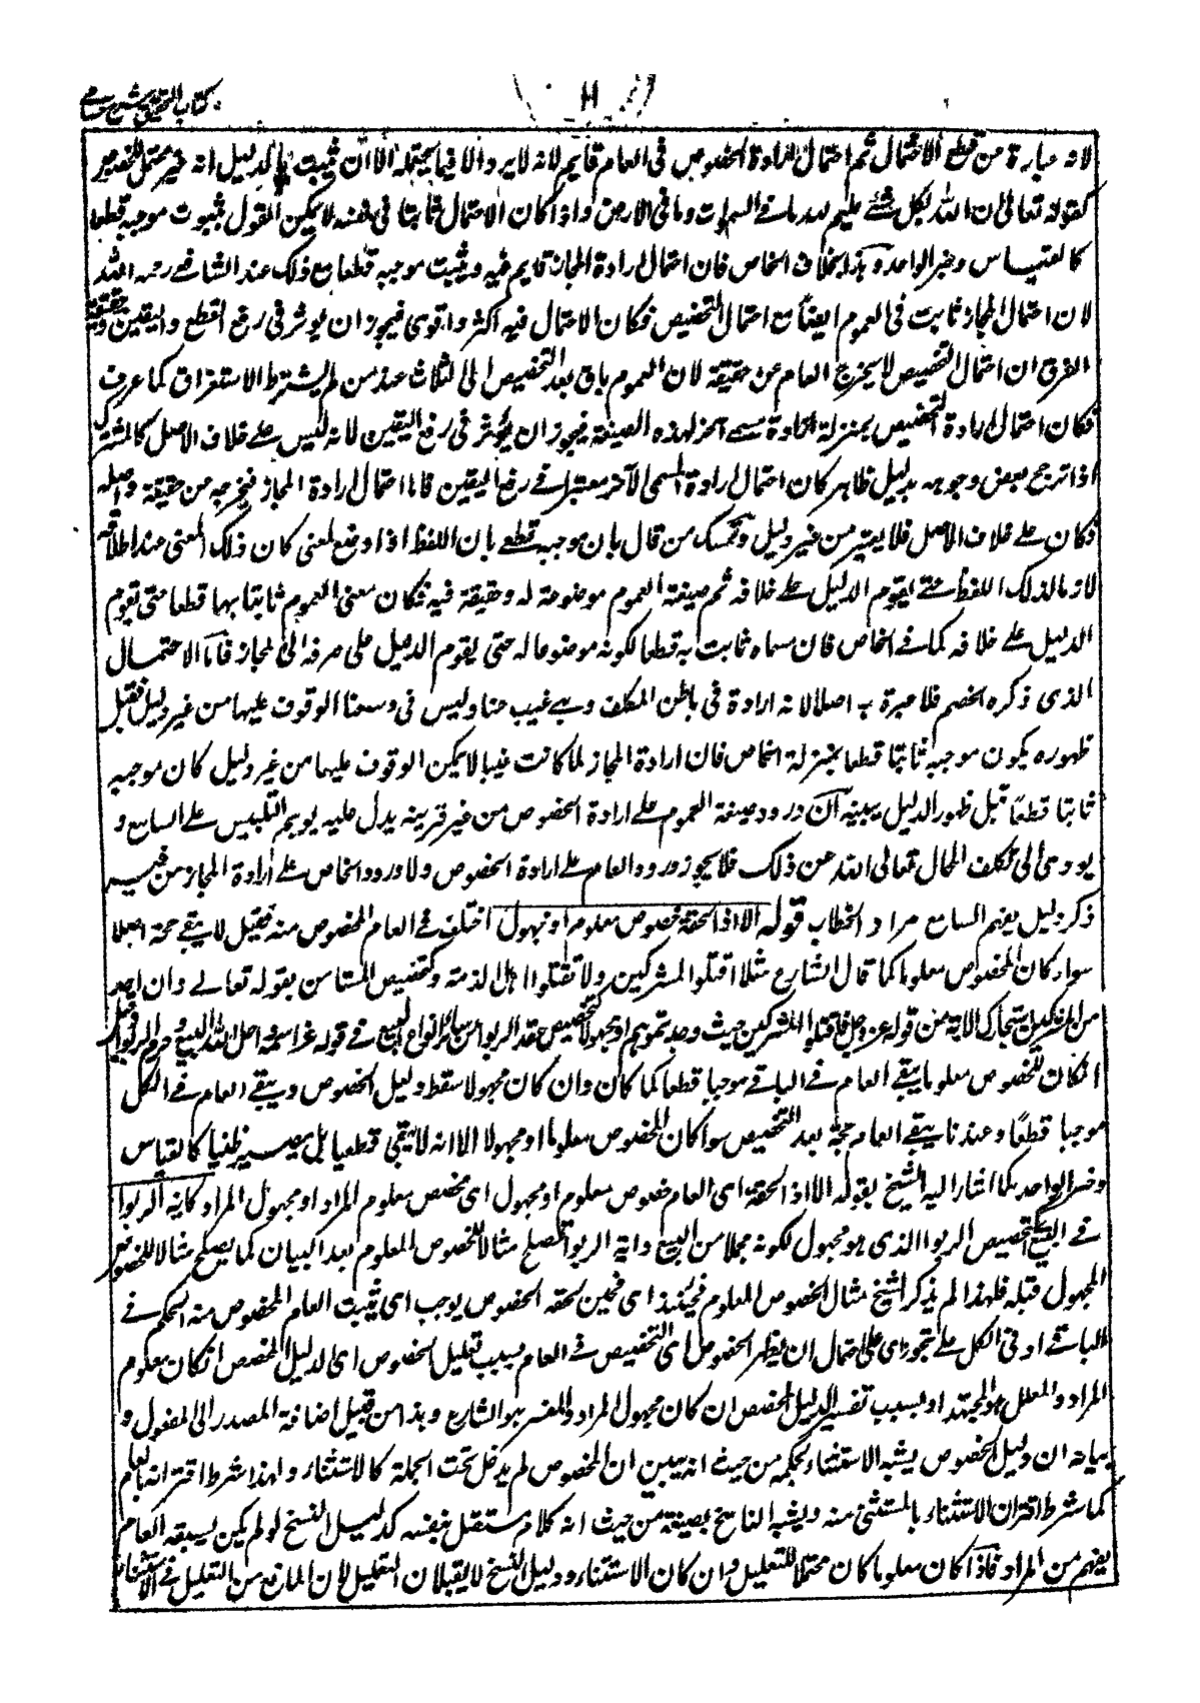 كتاب التحقيق شرح حسامي
١١
لانه عبارة من قطع الاحتمال ثم احتمال ارادة الخصوص في العام قايم لانه لا يرد الا فيما يحتمله الا ان ثبت بالدليل انه غير محتمل للخصوص
كقوله تعالى ان الله بكل شئ عليم لله ما في السموات وما في الارض واذا كان الاحتمال ثابتا في نفسه لا يمكن القول بثبوت موجبه قطعا
كالقياس وخبر الواحد وهذا بخلاف الخاص فان احتمال ارادة المجاز قايم فيه ويثبت موجبه قطعا مع ذلك عند الشافعي رحمه الله
لان احتمال المجاز ثابت في العموم ايضا مع احتمال التخصيص فكان الاحتمال فيه اكثر واقوى فيجوز ان يوثر في رفع القطع واليقين وحقيقة
الفرق ان احتمال التخصيص لا يخرج العام عن حقيقته لان العموم باق بعد التخصيص الى الثلاث عند من لم يشترط الاستغراق كما عرف
فكان احتمال ارادة التخصيص بمنزلة ارادة مسمى آخر لهذه الصيغة فيجوز ان يؤثر في رفع اليقين لانه ليس على خلاف الاصل كالمشترك
اذا ترجح بعض وجوهه بدليل ظاهر كان احتمال ارادة المسمى الآخر معتبرا في رفع اليقين فاما احتمال ارادة المجاز فيخرجه من حقيقته واصله
فكان على خلاف الاصل فلا يعتبر من غير دليل وتمسك من قال بان موجبه قطعي بان اللفظ اذا وضع لمعنى كان ذلك المعنى عند اطلاقه
لازما لذلك اللفظ حتى يقوم الدليل على خلافه ثم صيغة العموم موضوعة له وحقيقة فيه فكان معنى العموم ثابتا بها قطعا حتى يقوم
الدليل على خلافه كما في الخاص فان مسماه ثابت به قطعا لكونه موضوعا له حتى يقوم الدليل على صرفه الى المجاز فاما الاحتمال
الذي ذكره الخصم فلا عبرة به اصلا لانه ارادة في باطن المكلف وهي غيب عنا وليس في وسعنا الوقوف عليها من غير دليل فقبل
ظهوره يكون موجبه ثابتا قطعا بمنزلة الخاص فان ارادة المجاز لما كانت غيبا لا يمكن الوقوف عليها من غير دليل كان موجبه
ثابتا قطعا قبل ظهور الدليل يبينه ان ورود صيغة العموم على ارادة الخصوص من غير قرينه يدل عليه يوهم التلبيس على السامع و
يودي الى تكلف المحال تعالى الله عن ذلك فلا يجوز ورود العام على ارادة الخصوص ولا ورود الخاص على ارادة المجاز من غير
ذكر دليل يفهم السامع مراد الخطاب قوله الا اذا لحقه خصوص معلوم او مجهول اختلف في العام المخصوص منه فقيل لا يبقى حجة اصلا
سواء كان المخصوص معلوما كما قال الشارع مثلا اقتلوا المشركين ولا تقتلوا اهل الذمة وكتخصيص المستامن بقوله تعالى وان احد
من المشركين استجارك الاية من قوله عز وجل فاقتلوا المشركين حيث وجدتموهم او مجهولا كتخصيص عقد الربوا من سائر انواع البيع في قوله عز اسمه احل الله البيع وحرم الربوا وقيل
ان كان المخصوص معلوما يبقى العام في الباقي موجبا قطعا كما كان وان كان مجهولا سقط دليل الخصوص ويبقى العام في الكل
موجبا قطعا وعندنا يبقى العام حجة بعد التخصيص سواء كان المخصوص معلوما او مجهولا الا انه لا يبقى قطعيا بل يصير ظنيا كالقياس
وخبر الواحد كما اشار اليه الشيخ بقوله الا اذا لحقه اي العام خصوص معلوم او مجهول اي مخصص معلوم المراد او مجهول المراد كاية الربوا
في البيع تخصيص الربوا الذي هو مجهول لكونه مجملا من البيع واية الربوا تصلح مثالا للخصوص المعلوم بعد البيان كما يصلح مثالا للخصوص
المجهول قبله فلهذا لم يذكر الشيخ مثال الخصوص المعلوم فحينئذ اي فحين لحقه الخصوص يوجب اي يثبت العام المخصوص منه الحكم في
الباقي او في الكل على تجوز اي على احتمال ان يظهر الخصوص اي التخصيص في العام بسبب تعليل الخصوص اي الدليل المخصص ان كان معلوم
المراد والمعلل هو المجتهد او بسبب تفسير الدليل المخصص ان كان مجهول المراد والمفسر هو الشارع وهذا من قبيل اضافة المصدر الى المفعول و
بيانه ان دليل الخصوص يشبه الاستثناء بحكمه من حيث انه يبين ان المخصوص لم يدخل تحت الجملة كالاستثناء ولهذا شرط اقترانه بالعام
كما شرط اقتران الاستثناء بالمستثنى منه ويشبه الناسخ بصيغته من حيث انه كلام مستقل بنفسه كدليل النسخ لو لم يكن يسبقه العام
يفهم من المراد فاذا كان معلوما كان محتملا للتعليل وان كان الاستثناء ودليل النسخ لا يقبلان التعليل لان المانع من التعليل في الاستثناء